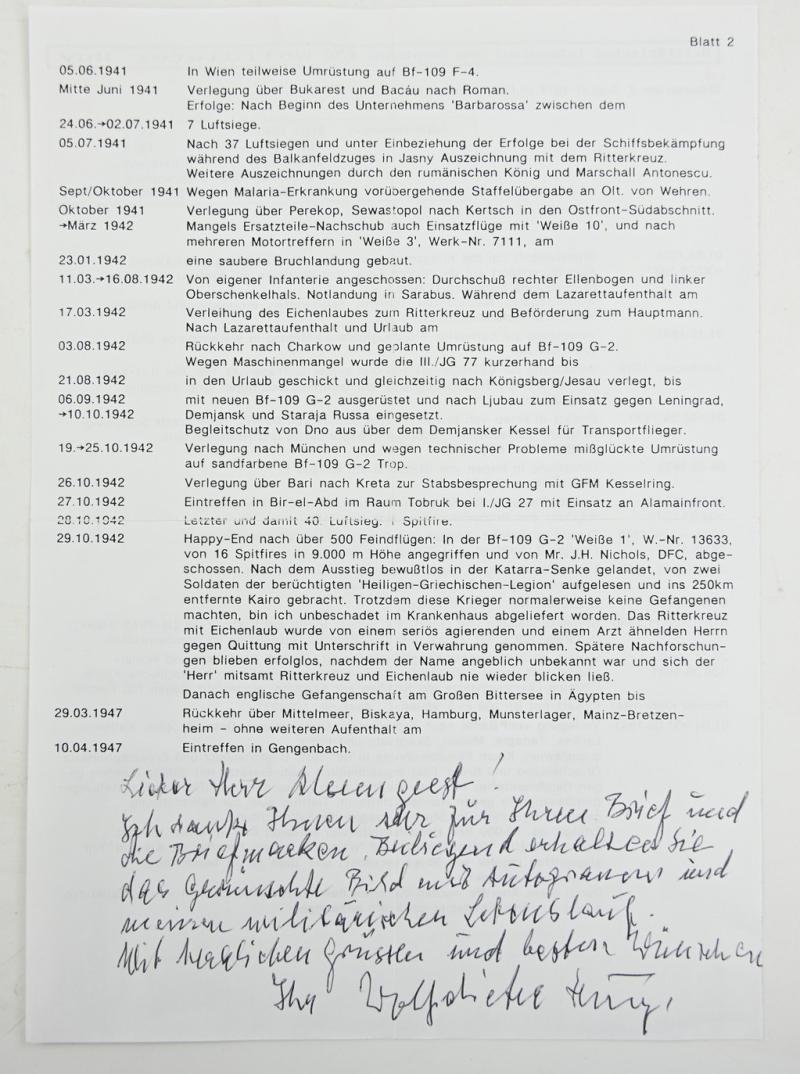 Blatt 2
05.06.1941 In Wien teilweise Umrüstung auf Bf-109 F-4.
Mitte Juni 1941 Verlegung über Bukarest und Bacáu nach Roman.
Erfolge: Nach Beginn des Unternehmens 'Barbarossa' zwischen dem
24.06.→02.07.1941 7 Luftsiege.
05.07.1941 Nach 37 Luftsiegen und unter Einbeziehung der Erfolge bei der Schiffsbekämpfung
während des Balkanfeldzuges in Jasny Auszeichnung mit dem Ritterkreuz.
Weitere Auszeichnungen durch den rumänischen König und Marschall Antonescu.
Sept/Oktober 1941 Wegen Malaria-Erkrankung vorübergehende Staffelübergabe an Olt. von Wehren.
Oktober 1941 Verlegung über Perekop, Sewastopol nach Kertsch in den Ostfront-Südabschnitt.
→März 1942 Mangels Ersatzteile-Nachschub auch Einsatzflüge mit 'Weiße 10', und nach
mehreren Motortreffern in 'Weiße 3', Werk-Nr. 7111, am
23.01.1942 eine saubere Bruchlandung gebaut.
11.03.→16.08.1942 Von eigener Infanterie angeschossen: Durchschuß rechter Ellenbogen und linker
Oberschenkelhals. Notlandung in Sarabus. Während dem Lazarettaufenthalt am
17.03.1942 Verleihung des Eichenlaubes zum Ritterkreuz und Beförderung zum Hauptmann.
Nach Lazarettaufenthalt und Urlaub am
03.08.1942 Rückkehr nach Charkow und geplante Umrüstung auf Bf-109 G-2.
Wegen Maschinenmangel wurde die III./JG 77 kurzerhand bis
21.08.1942 in den Urlaub geschickt und gleichzeitig nach Königsberg/Jesau verlegt, bis
06.09.1942 mit neuen Bf-109 G-2 ausgerüstet und nach Ljubau zum Einsatz gegen Leningrad,
→10.10.1942 Demjansk und Staraja Russa eingesetzt.
Begleitschutz von Dno aus über dem Demjansker Kessel für Transportflieger.
19.→25.10.1942 Verlegung nach München und wegen technischer Probleme mißglückte Umrüstung
auf sandfarbene Bf-109 G-2 Trop.
26.10.1942 Verlegung über Bari nach Kreta zur Stabsbesprechung mit GFM Kesselring.
27.10.1942 Eintreffen in Bir-el-Abd im Raum Tobruk bei I./JG 27 mit Einsatz an Alamainfront.
28.10.1942 Letzter und damit 40. Luftsieg: 1 Spitfire.
29.10.1942 Happy-End nach über 500 Feindflügen: In der Bf-109 G-2 'Weiße 1', W.-Nr. 13633,
von 16 Spitfires in 9.000 m Höhe angegriffen und von Mr. J.H. Nichols, DFC, abge-
schossen. Nach dem Ausstieg bewußtlos in der Katarra-Senke gelandet, von zwei
Soldaten der berüchtigten 'Heiligen-Griechischen-Legion' aufgelesen und ins 250km
entfernte Kairo gebracht. Trotzdem diese Krieger normalerweise keine Gefangenen
machten, bin ich unbeschadet im Krankenhaus abgeliefert worden. Das Ritterkreuz
mit Eichenlaub wurde von einem seriös agierenden und einem Arzt ähnelden Herrn
gegen Quittung mit Unterschrift in Verwahrung genommen. Spätere Nachforschun-
gen blieben erfolglos, nachdem der Name angeblich unbekannt war und sich der
'Herr' mitsamt Ritterkreuz und Eichenlaub nie wieder blicken ließ.
Danach englische Gefangenschaft am Großen Bittersee in Ägypten bis
29.03.1947 Rückkehr über Mittelmeer, Biskaya, Hamburg, Munsterlager, Mainz-Bretzen-
heim - ohne weiteren Aufenthalt am
10.04.1947 Eintreffen in Gengenbach.
Lieber Herr
Ich danke Ihnen sehr für Ihren Brief und
die Briefmarken. Beiliegend erhalten Sie
das gewünschte Bild mit Autogramm und
meinen militärischen Lebenslauf.
Mit herzlichen Grüssen und besten Wünschen
Ihr Wolfdieter Huy.